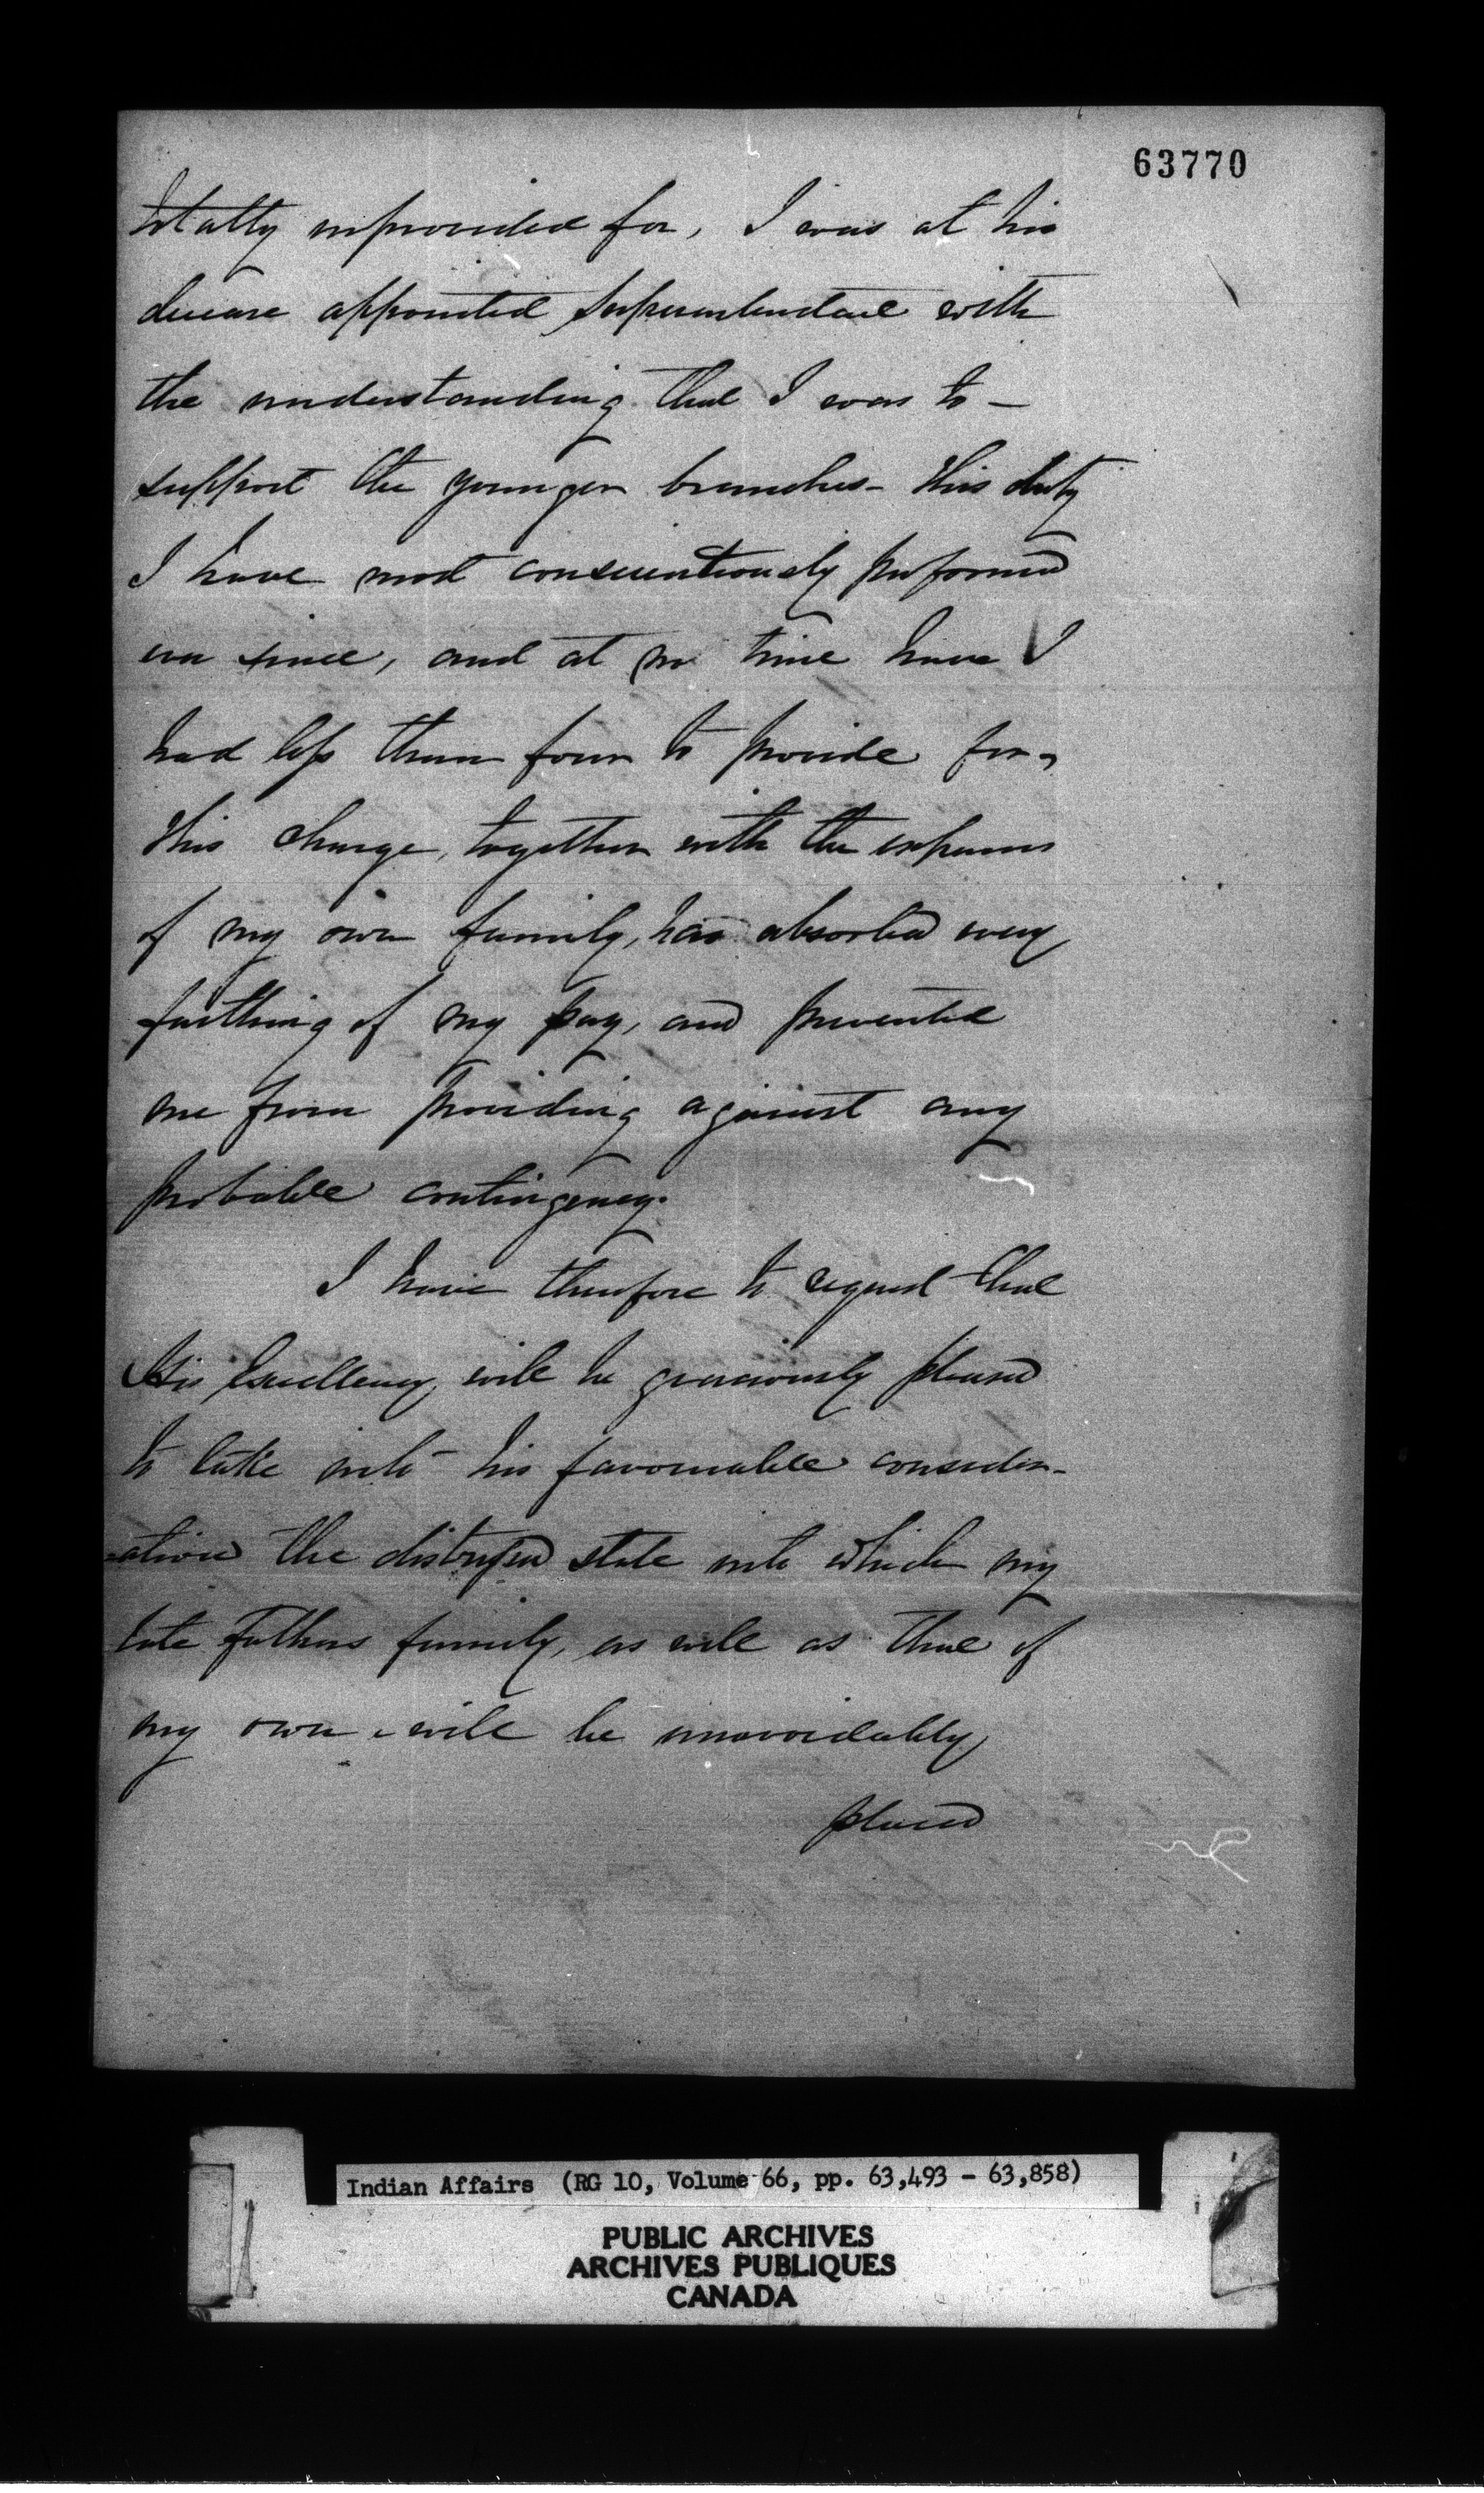 63770
totally unprovided for, I was at his
decease appointed Superintendent with
the understanding that I was to -
support the younger branches - This duty
I have most conscientiously performed
ever since, and at no time have I
had less than four to provide for,
This charge, together with the expenses
of my own family, has absorbed every
farthing of my pay, and prevented
me from providing against any
probable contingency.
I have therefore to request that
His Excellency will be graciously pleased
to take into his favourable consider-
-ation the distressed state into which my
late fathers family, as well as that of
my own - will be unavoidably
placed
Indian Affairs (RG 10, Volume 66, pp. 63,493 - 63,858)
PUBLIC ARCHIVES
ARCHIVES PUBLIQUES
CANADA